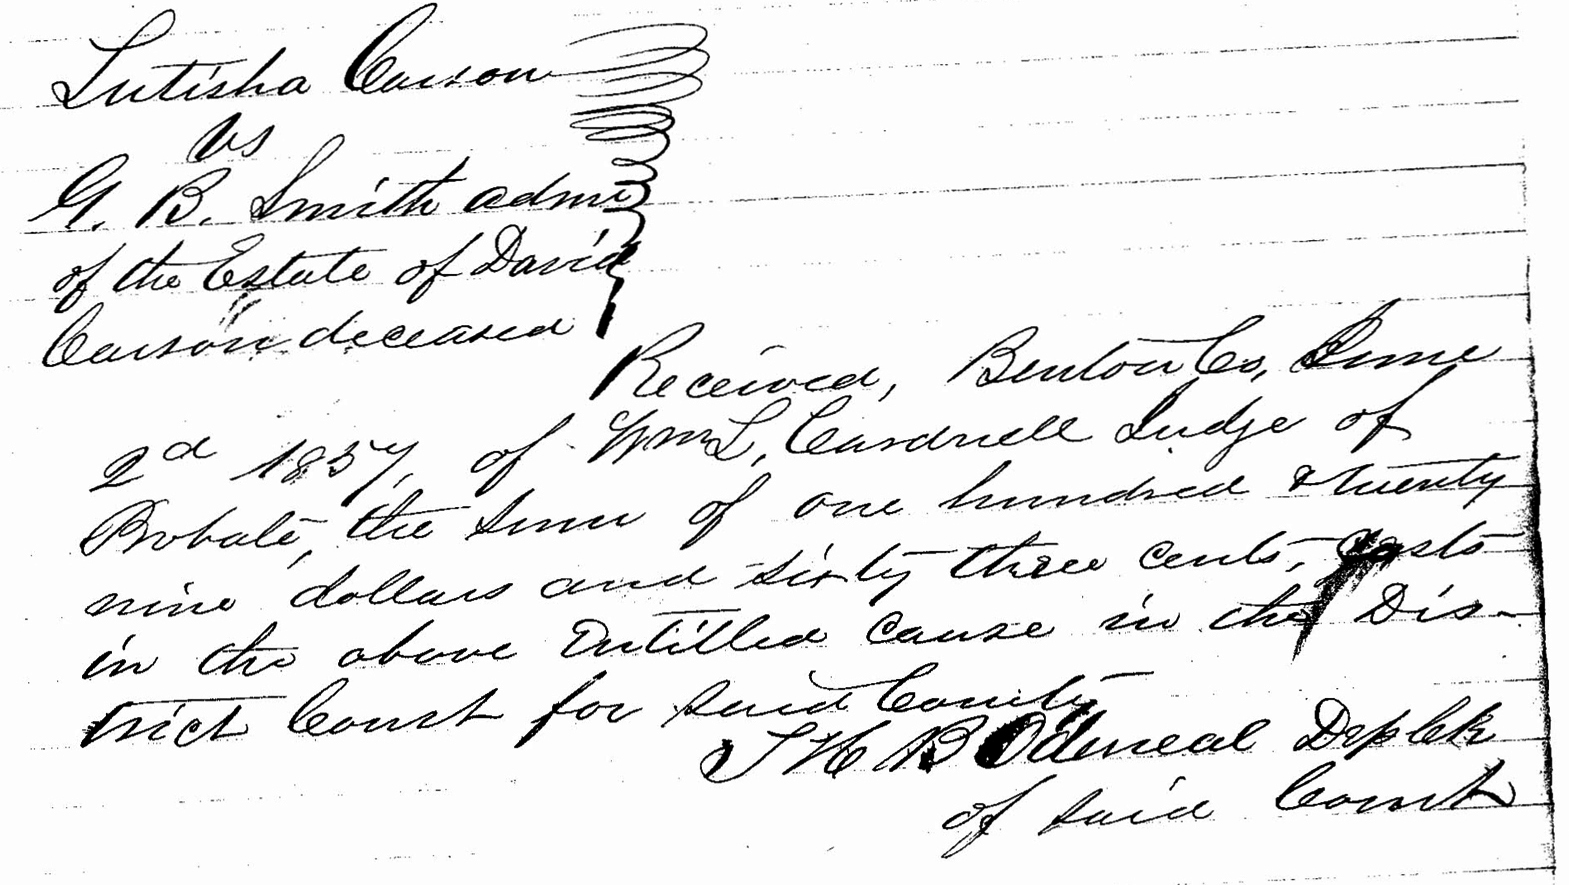 Lutisha Carson
vs
G. B. Smith admr
of the Estate of David
Carson deceased
Received, Benton Co, June
2d 1857, of Wm L, Cardwell Judge of
Probate, the sum of one hundred & twenty
nine dollars and sixty three cents, costs
in the above Entitled cause in the Dis-
trict Court for said County
T H B Odeneal Dep Clk
of said Court